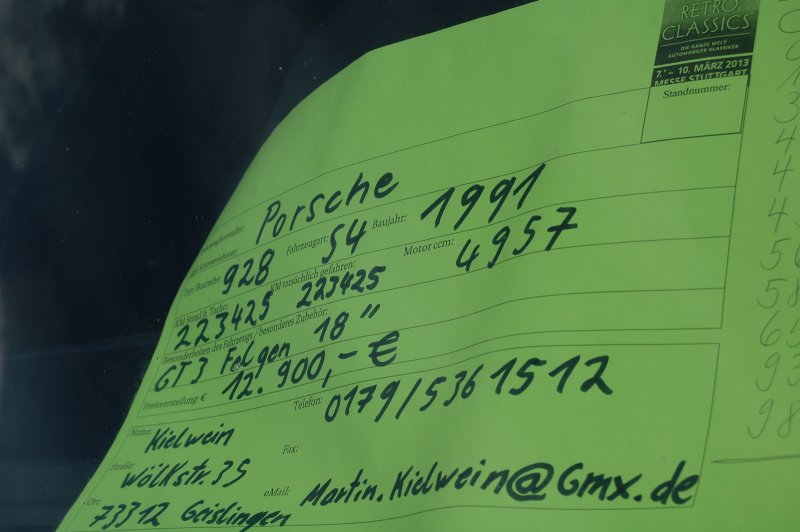 RETRO
CLASSICS
DIE GANZE WELT
AUTOMOBILER KLASSIKER
7. – 10. MÄRZ 2013
MESSE STUTTGART
Standnummer:
Porsche
Typ/Baureihe: 928 Fahrzeugart: S4 Baujahr: 1991
KM Stand lt. Tacho: 223425 KM tatsächlich gefahren: 223425 Motor ccm: 4957
Besonderheiten des Fahrzeugs / besonderes Zubehör:
GT3 Felgen 18"
Preisvorstellung: € 12.900,- €
Name: Kielwein Telefon: 0179/5361512
Straße: Wölkstr. 35 Fax:
Ort: 73312 Geislingen eMail: Martin.Kielwein@Gmx.de